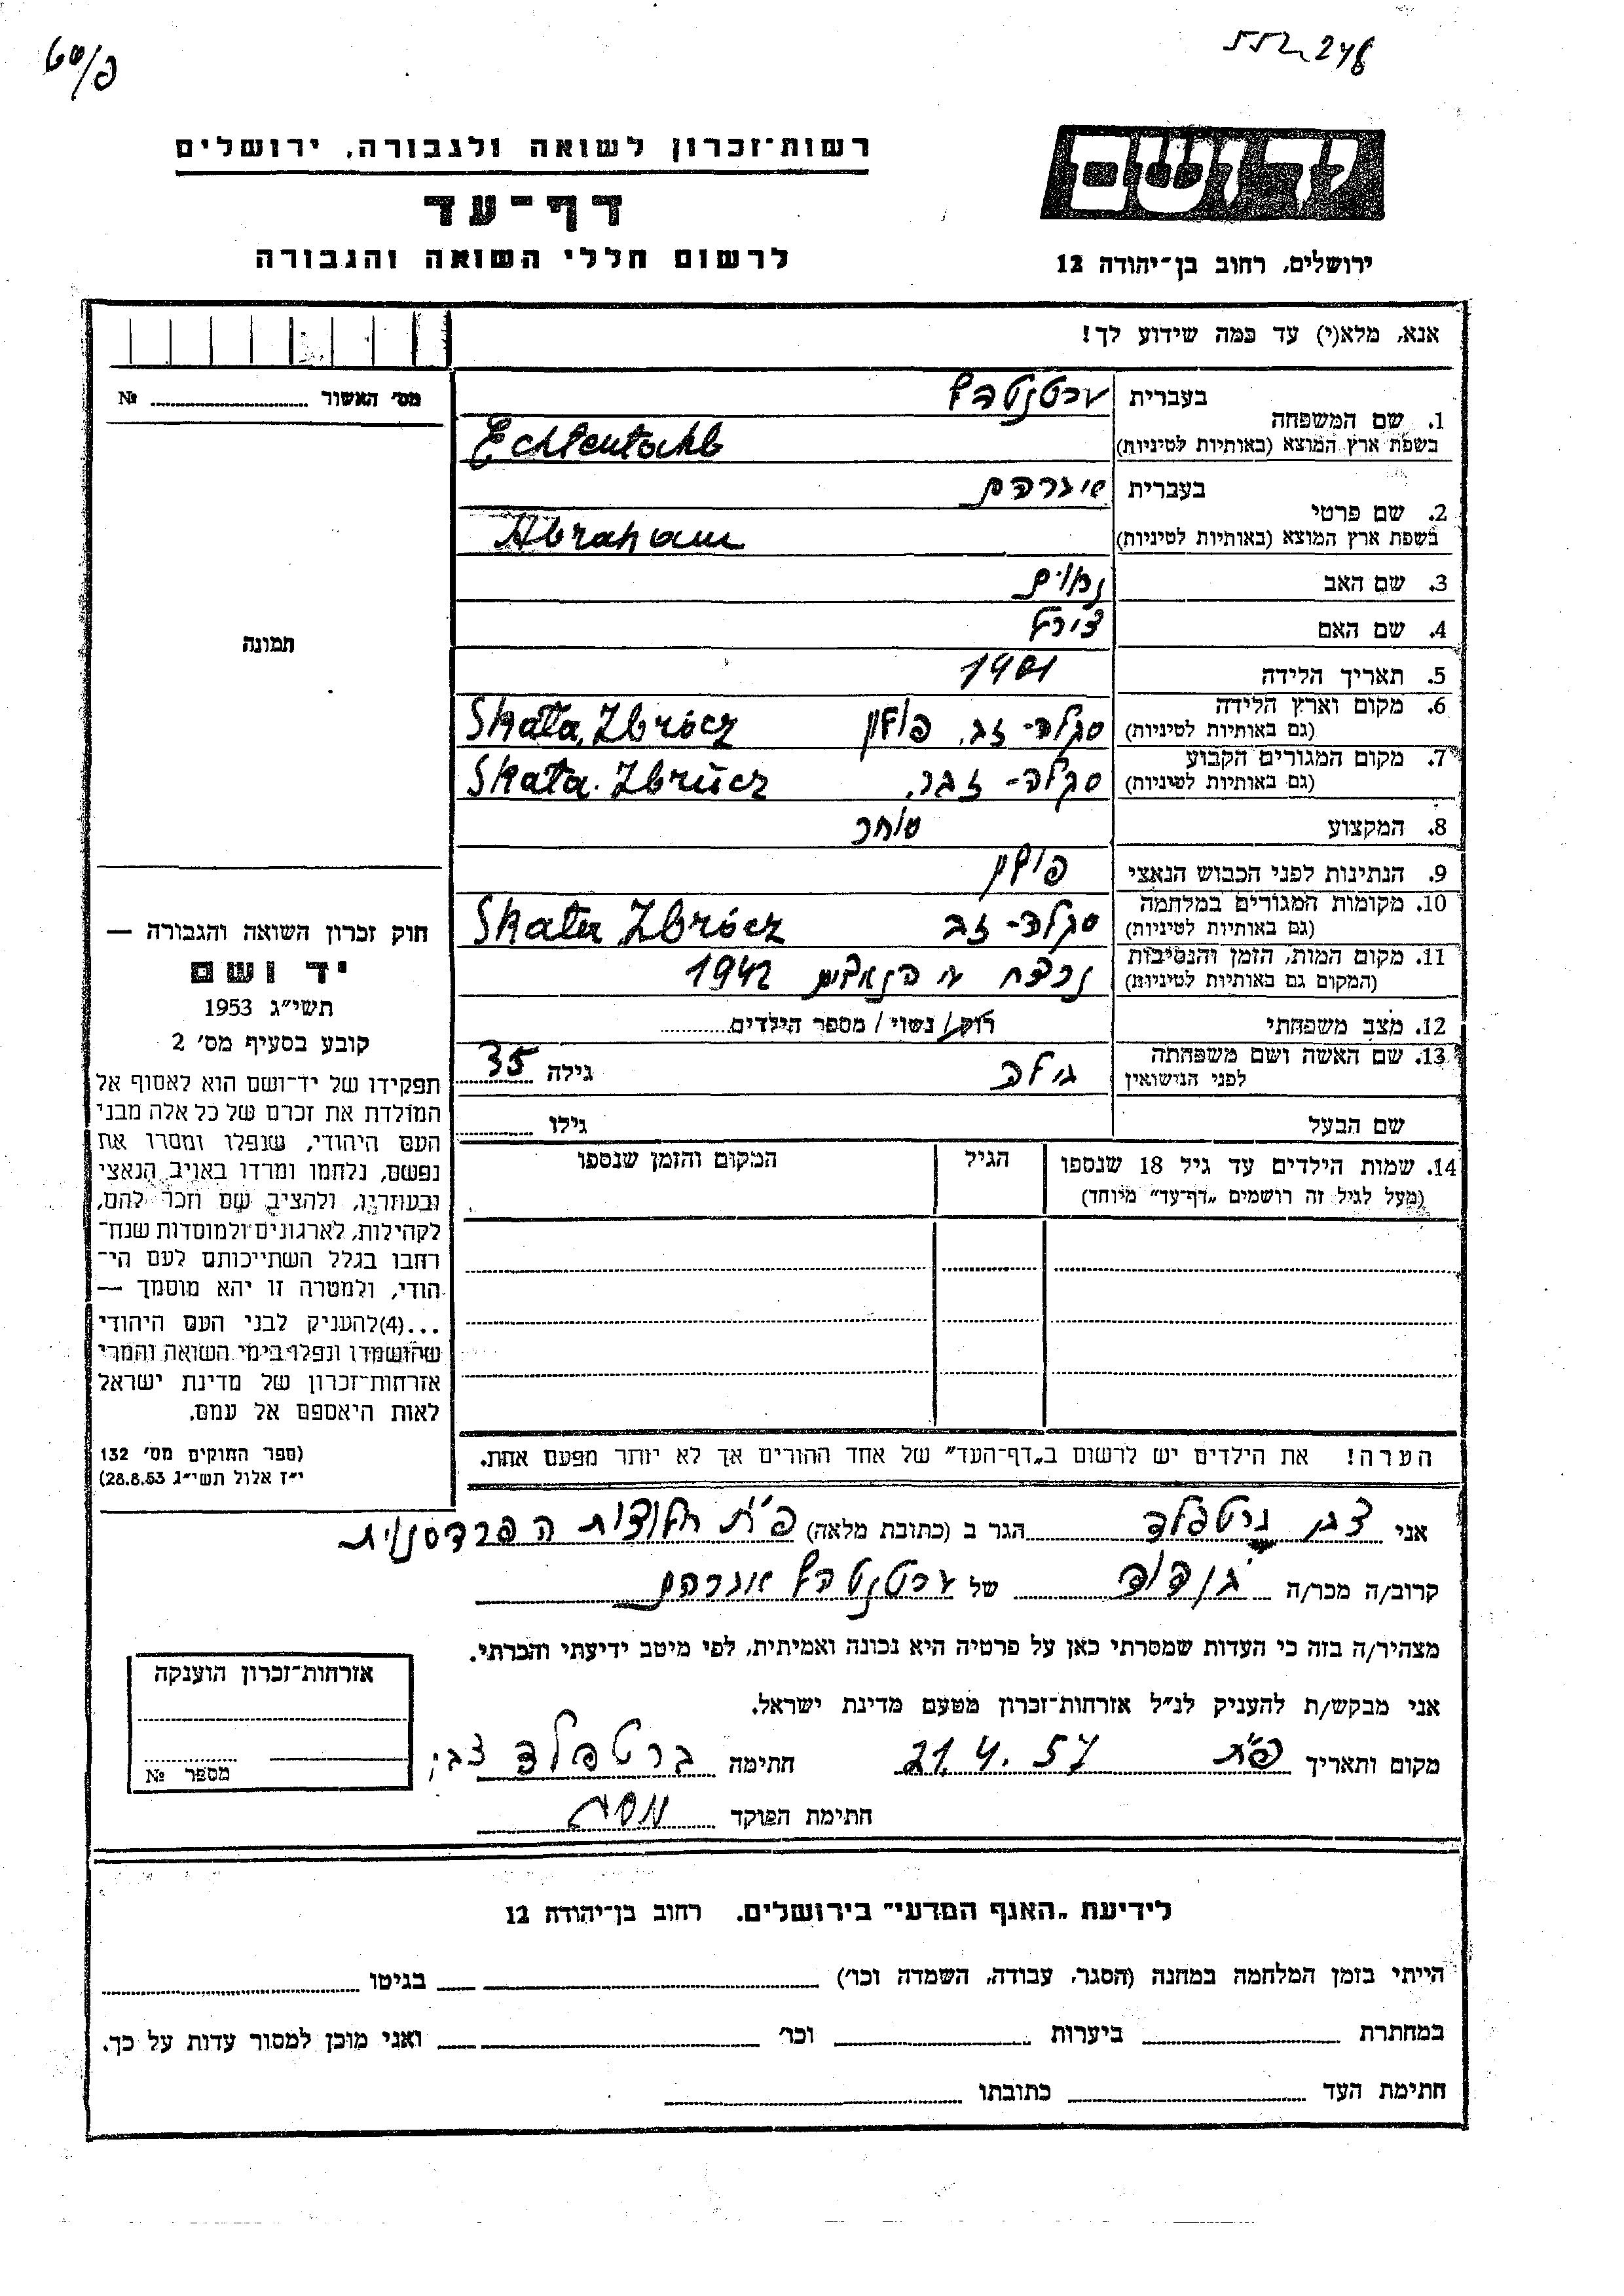 רשות־זכרון לשואה ולגבורה, ירושלים
דף־עד
לרשום חללי השואה והגבורה
יד ושם
ירושלים, רחוב בן־יהודה 12
אנא, מלא(י) עד כמה שידוע לך!
מס׳ האשור № 
1. שם המשפחה
בעברית
בשפת ארץ המוצא (באותיות לטיניות)
2. שם פרטי
בעברית אברהם
בשפת ארץ המוצא (באותיות לטיניות) Abraham
3. שם האב נחום
4. שם האם
5. תאריך הלידה 1901
6. מקום וארץ הלידה סקלה - זב. פולין Skała, Zbrócz
(גם באותיות לטיניות)
7. מקום המגורים הקבוע סקלה - זבר. Skała. Zbrucz
(גם באותיות לטיניות)
8. המקצוע סוחר
9. הנתינות לפני הכבוש הנאצי פולין
10. מקומות המגורים במלחמה סקלה - זב Skała Zbrócz
(גם באותיות לטיניות)
11. מקום המות, הזמן והנסיבות נרצח ע״י הנאצים 1942
(המקום גם באותיות לטיניות)
12. מצב משפחתי רווק / נשוי / מספר הילדים
13. שם האשה ושם משפחתה גילה 35
לפני הנישואין
שם הבעל גילו
14. שמות הילדים עד גיל 18 שנספו הגיל המקום והזמן שנספו
(מעל לגיל זה רושמים „דף־עד״ מיוחד)
הערה! את הילדים יש לרשום ב„דף־העד״ של אחד ההורים אך לא יותר מפעם אחת.
תמונה
חוק זכרון השואה והגבורה —
יד ושם
תשי״ג 1953
קובע בסעיף מס׳ 2
תפקידו של יד־ושם הוא לאסוף אל
המולדת את זכרם של כל אלה מבני
העם היהודי, שנפלו ומסרו את
נפשם, נלחמו ומרדו באויב הנאצי
ובעוזריו, ולהציב שם וזכר להם,
לקהילות, לארגונים ולמוסדות שנח־
רבו בגלל השתייכותם לעם הי־
הודי, ולמטרה זו יהא מוסמך —
...(4) להעניק לבני העם היהודי
שהושמדו ונפלו בימי השואה והמרי
אזרחות־זכרון של מדינת ישראל
לאות היאספם אל עמם.
(ספר החוקים מס׳ 132
י״ז אלול תשי״ג 28.8.53)
אני הגר ב (כתובת מלאה) פ״ת
קרוב/ה מכר/ה בן דוד של אברהם
מצהיר/ה בזה כי העדות שמסרתי כאן על פרטיה היא נכונה ואמיתית, לפי מיטב ידיעתי והכרתי.
אני מבקש/ת להעניק לנ״ל אזרחות־זכרון מטעם מדינת ישראל.
מקום ותאריך פ״ת 21.4.57 חתימה
חתימת הפוקד
אזרחות־זכרון הוענקה
מספר №
לידיעת „האגף המדעי״ בירושלים, רחוב בן־יהודה 12
הייתי בזמן המלחמה במחנה (הסגר, עבודה, השמדה וכו׳) בגיטו
במחתרת ביערות וכו׳ ואני מוכן למסור עדות על כך.
חתימת העד כתובתו